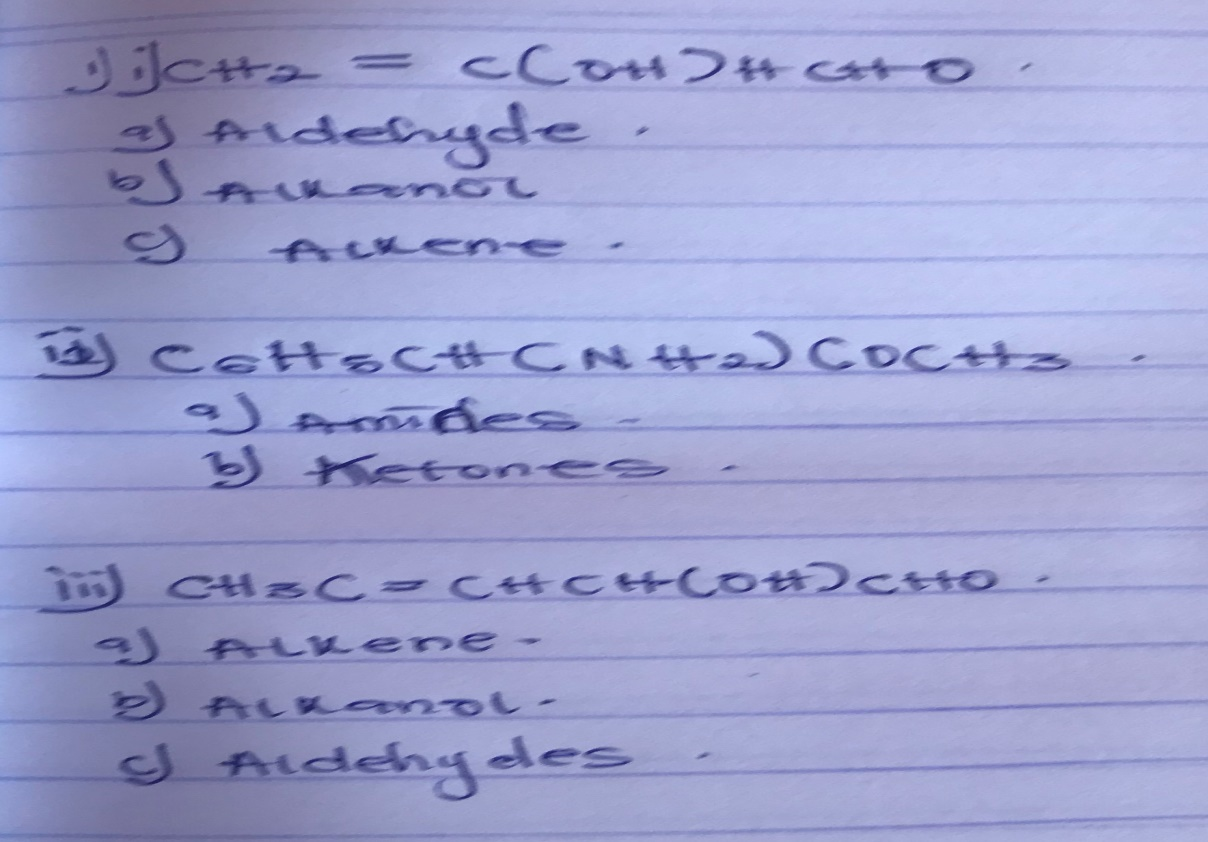 1) i) CH2 = C(OH)HCHO.
a) Aldehyde.
b) Alkanol
c) Alkene.
ii) C6H5CH(NH2)COCH3.
a) Amides-
b) Ketones.
iii) CH3C=CHCH(OH)CHO.
a) Alkene-
b) Alkanol-
c) Aldehydes.